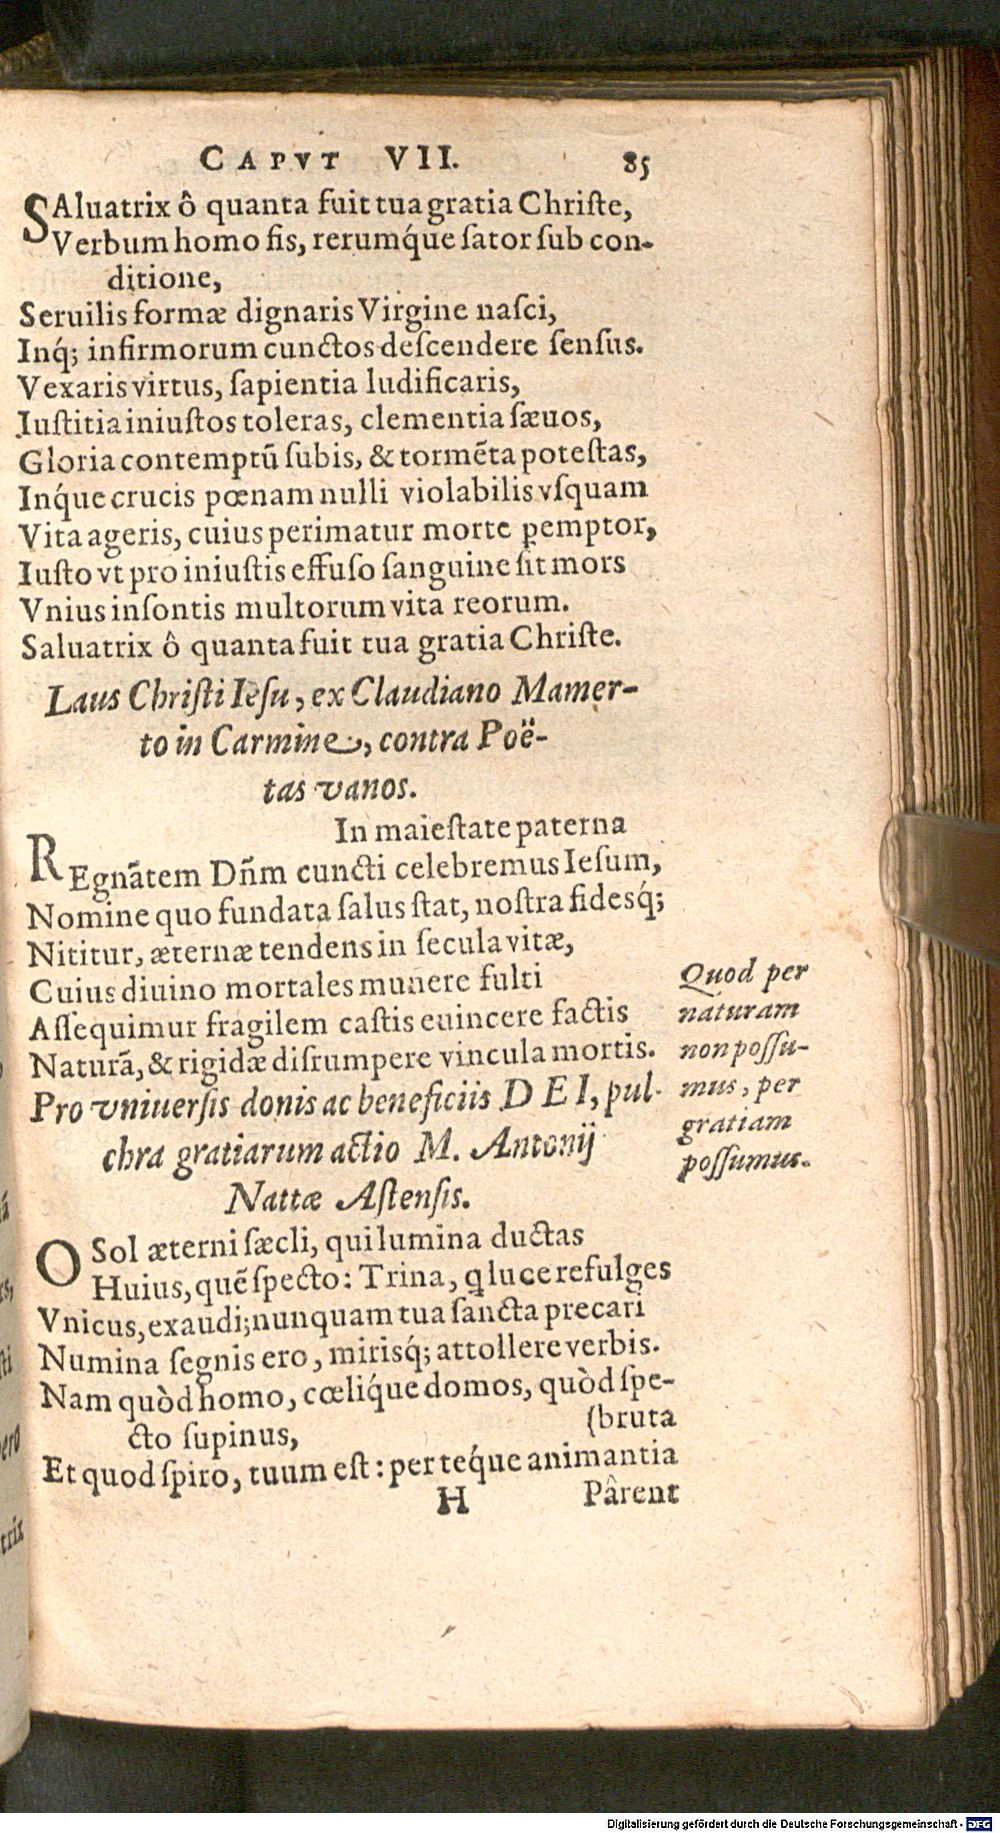 CAPVT VII. 85
SAluatrix ô quanta fuit tua gratia Christe,
Verbum homo fis, rerumq́ue sator sub con-
ditione,
Seruilis formæ dignaris Virgine nasci,
Inq́; infirmorum cunctos descendere sensus.
Vexaris virtus, sapientia ludificaris,
Iustitia iniustos toleras, clementia sæuos,
Gloria contemptū subis, & tormēta potestas,
Inq́ue crucis pœnam nulli violabilis vsquam
Vita ageris, cuius perimatur morte ꝑemptor,
Iusto vt pro iniustis effuso sanguine sit mors
Vnius insontis multorum vita reorum.
Saluatrix ô quanta fuit tua gratia Christe.
Laus Christi Iesu, ex Claudiano Mamer-
to in Carmine, contra Poë-
tas vanos.
In maiestate paterna
REgnãtem Dñm cuncti celebremus Iesum,
Nomine quo fundata salus stat, nostra fidesq́;
Nititur, æternæ tendens in secula vitæ,
Cuius diuino mortales munere fulti
Assequimur fragilem castis euincere factis
Naturã, & rigidæ disrumpere vincula mortis.
Quod per
naturam
non possu-
mus, per
gratiam
possumus.
Pro vniuersis donis ac beneficiis DEI, pul-
chra gratiarum actio M. Antonij
Nattæ Astensis.
O Sol æterni sæcli, qui lumina ductas
Huius, quē specto: Trina, q luce refulges
Vnicus, exaudi; nunquam tua sancta precari
Numina segnis ero, mirisq́; attollere verbis.
Nam quòd homo, cœliq́ue domos, quòd spe-
cto supinus, (bruta
Et quod spiro, tuum est: per teq́ue animantia
H Pârent
Digitalisierung gefördert durch die Deutsche Forschungsgemeinschaft - DFG